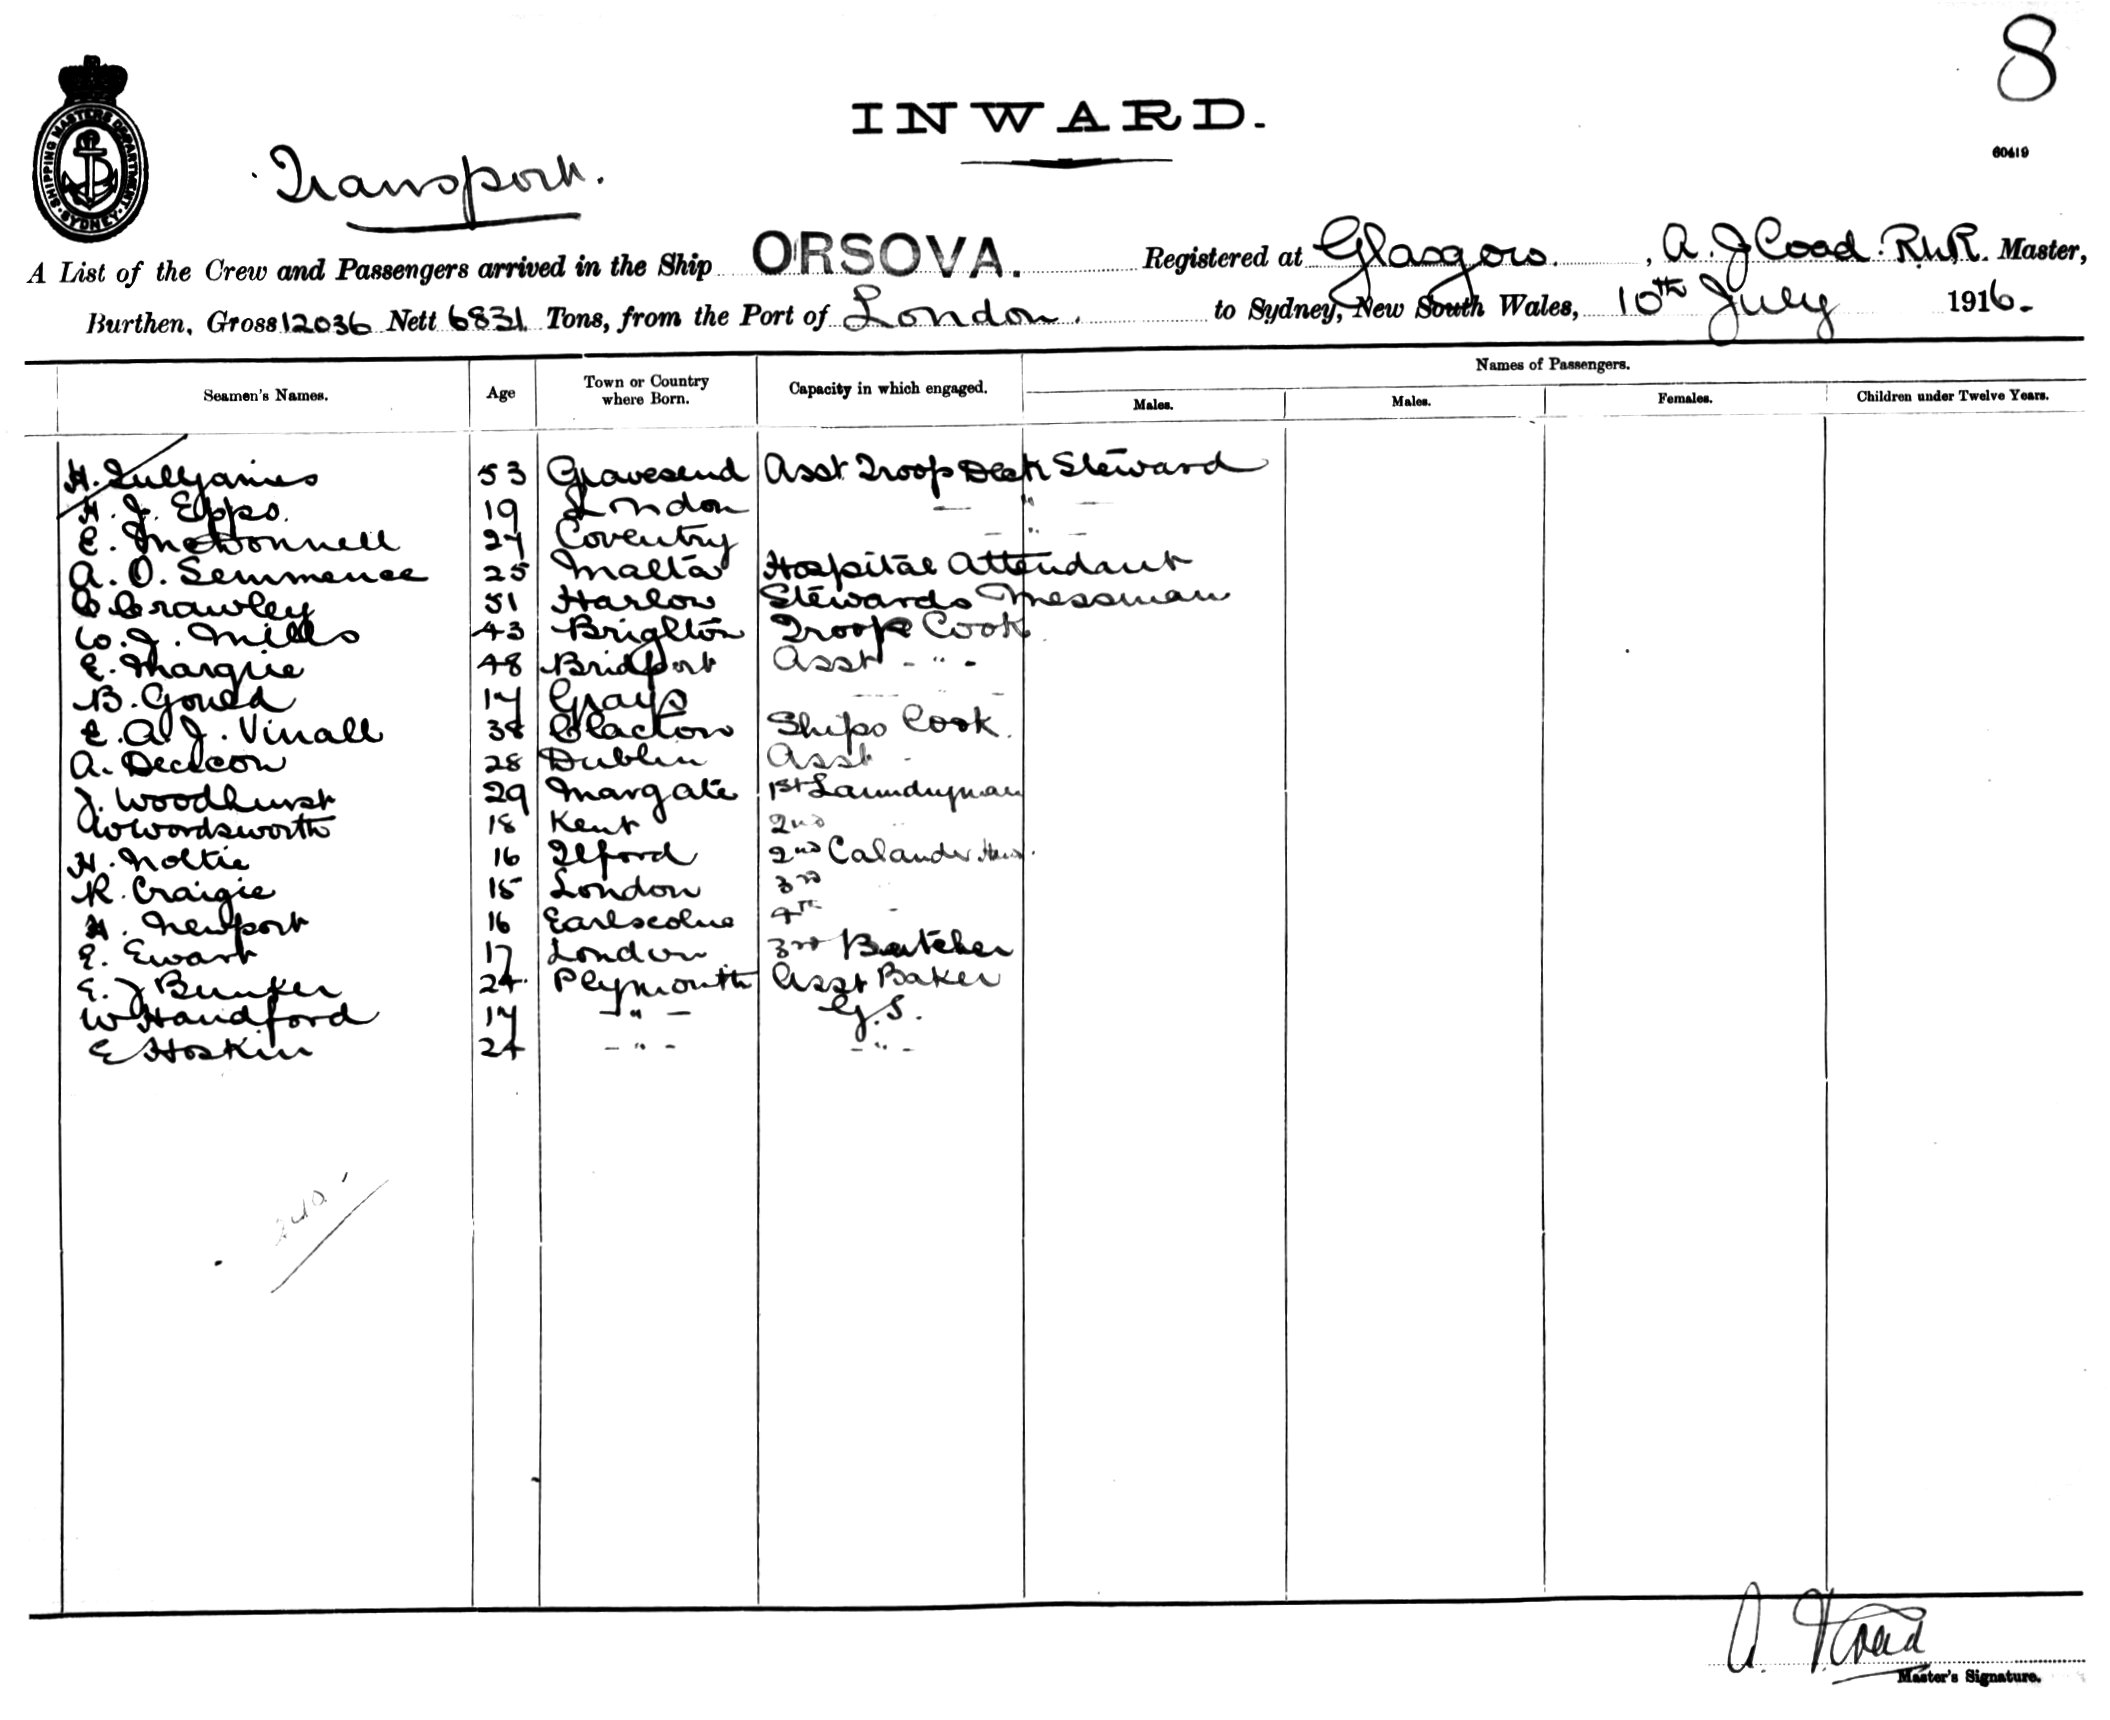 8
INWARD.
60419
SHIPPING MASTERS DEPARTMENT. SYDNEY
Transport.
A List of the Crew and Passengers arrived in the Ship ORSOVA. Registered at Glasgow. , A. J Coad. R.N.R. Master,
Burthen, Gross 12036 Nett 6831 Tons, from the Port of London. to Sydney, New South Wales, 10th July 1916.
Names of Passengers.
Seamen's Names. Age Town or Country where Born. Capacity in which engaged. Males. Males. Females. Children under Twelve Years.
H. 53 Gravesend Asst Troop Deck Steward
H. J. Epps. 19 London — " —
E. McDonnell 27 Coventry — " —
A. O. Semmence 25 Malta Hospital Attendant
C Crawley 51 Harlow Stewards Messman
W. J. Mills 43 Brighton Troop Cook
E. Marquie 48 Bridport Asst - " -
B. Gould 17 Grays — " —
E. A. J. Vinall 38 Clacton Ships Cook.
A. Deacon 28 Dublin Asst -
J. Woodhurst 29 Margate 1st Laundryman
W Wordsworth 18 Kent 2nd "
H. Noltie 16 Ilford 2nd Calander Man.
R. Craigie 15 London 3rd
H. Newport 16 Earlscolne 4th -
E. Ewart 17 London 3rd Butcher
E. J Bunker 24 Plymouth Asst Baker
W Handford 17 - " - G.S.
E Hoskin 24 - " - - " -
A. J Coad
Master's Signature.